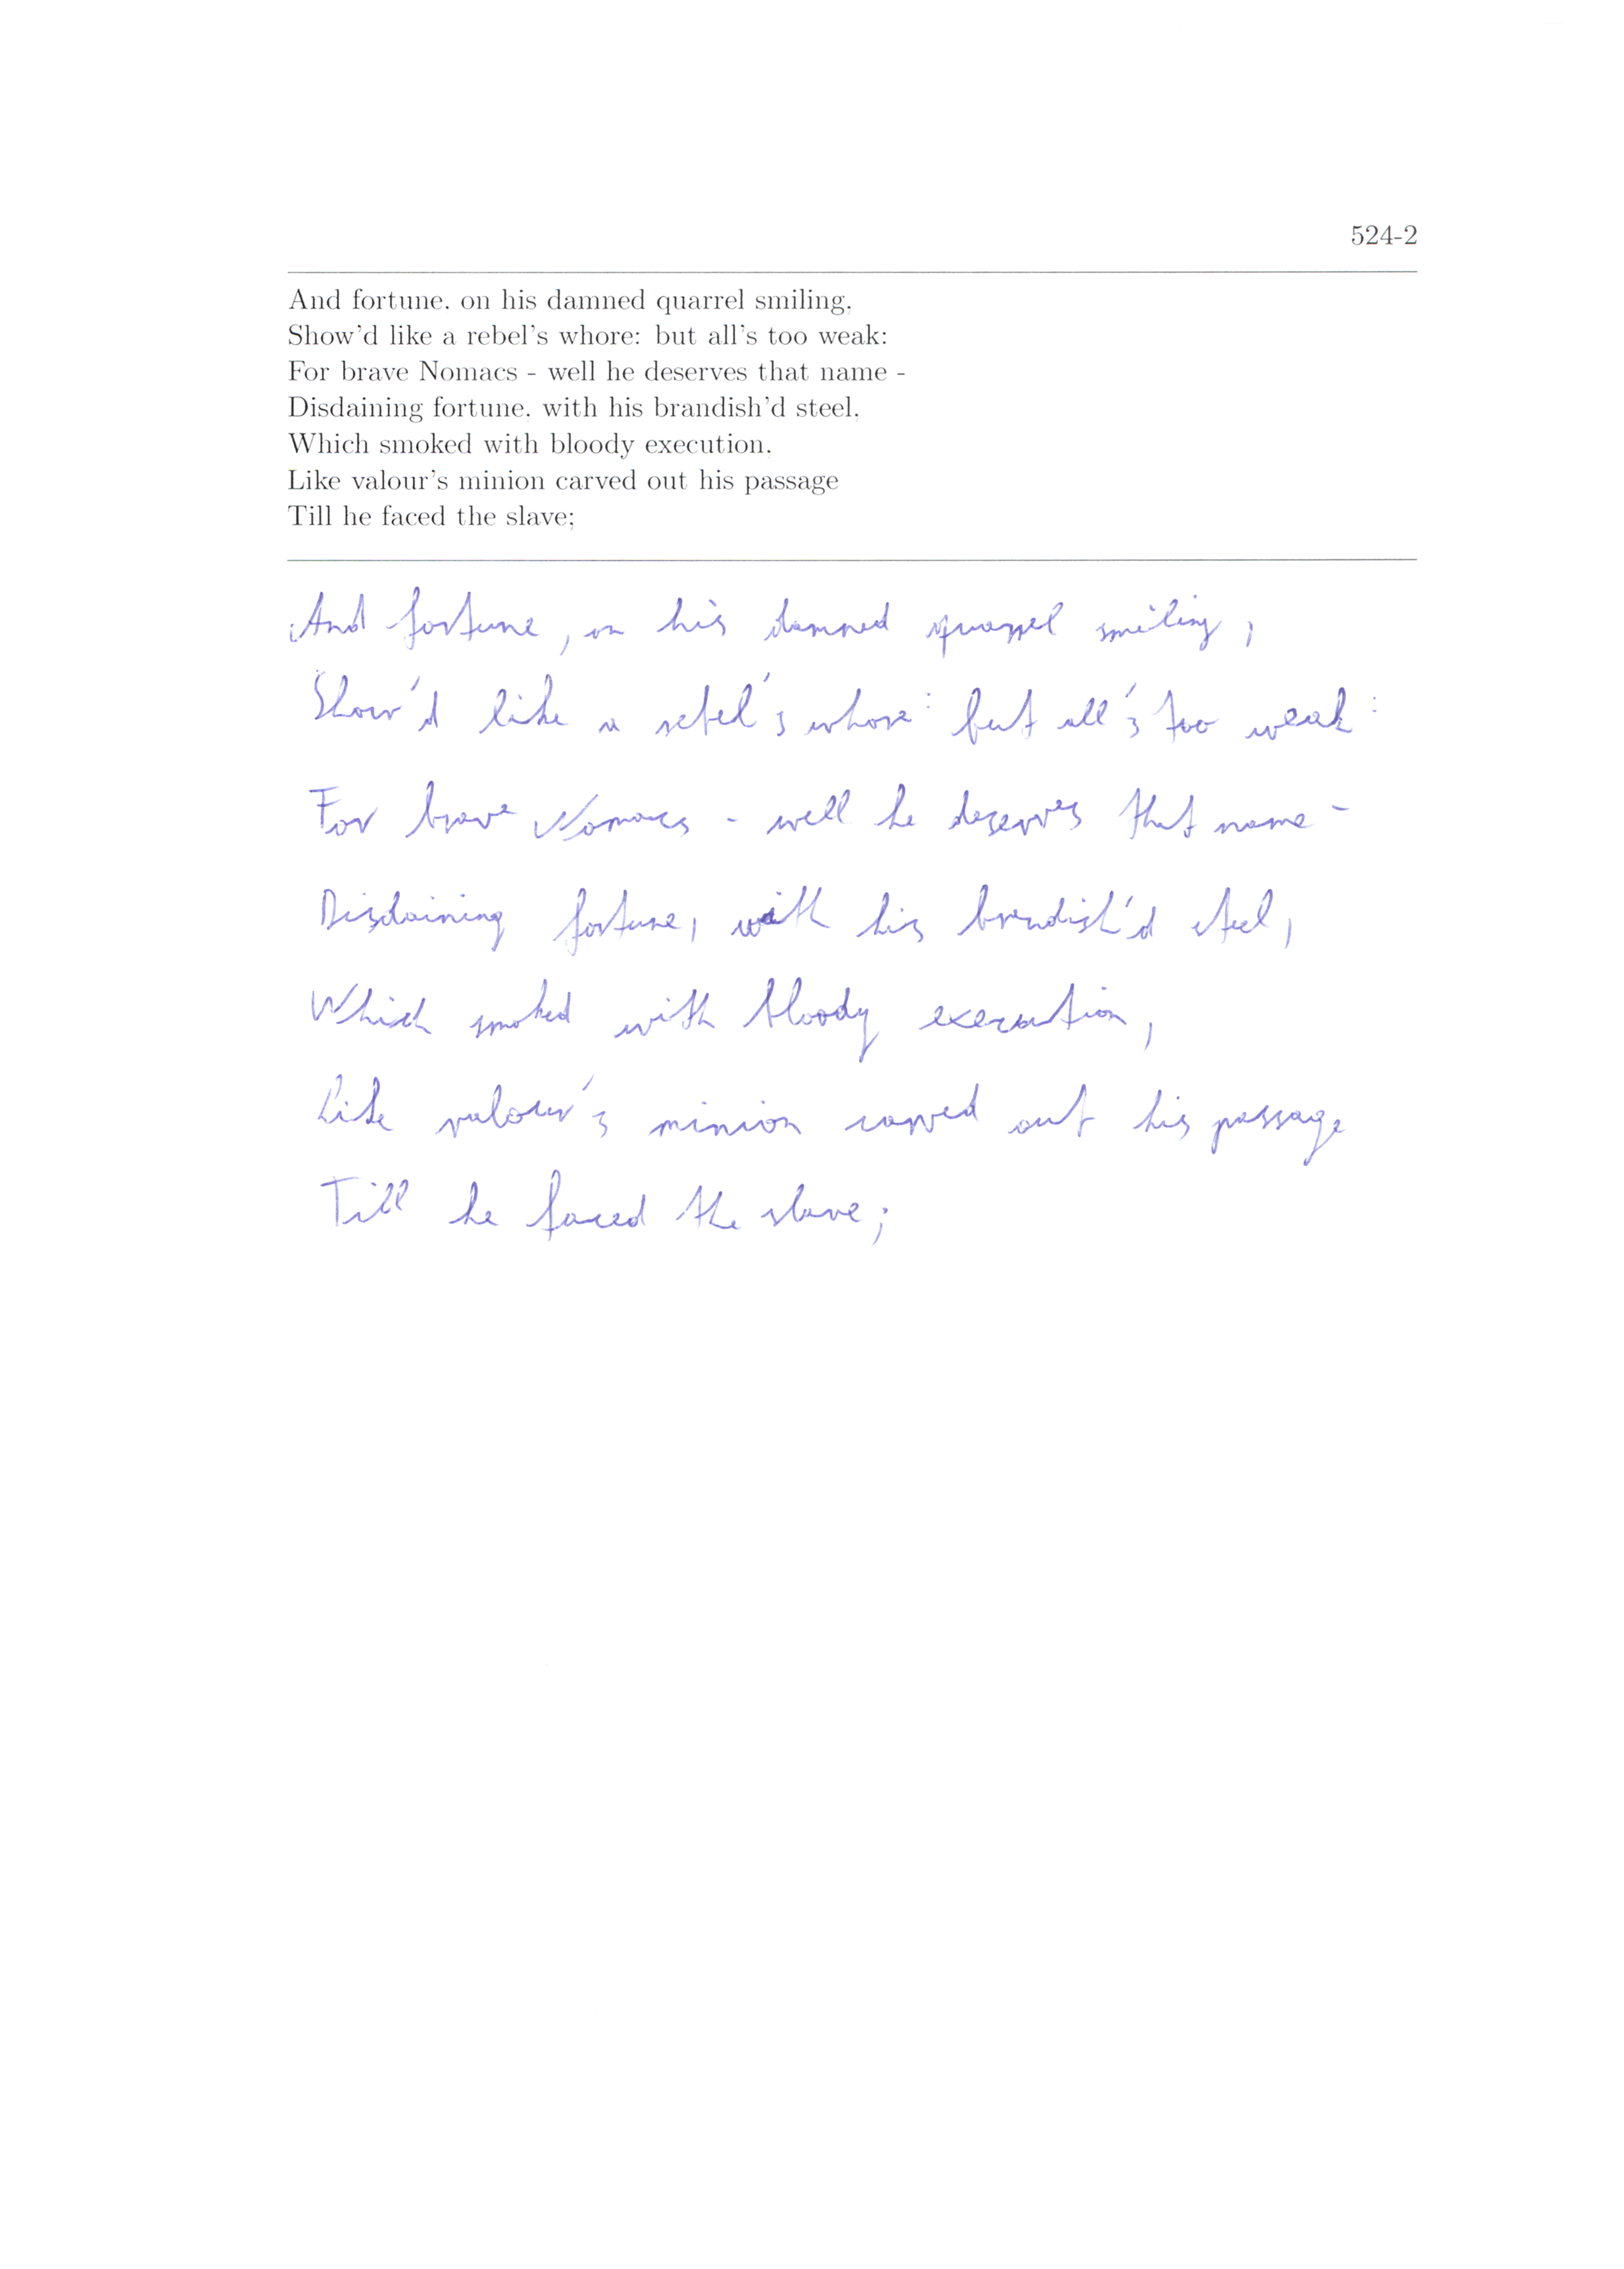 524-2
And fortune, on his damned quarrel smiling,
Show'd like a rebel's whore: but all's too weak:
For brave Nomacs - well he deserves that name -
Disdaining fortune, with his brandish'd steel,
Which smoked with bloody execution,
Like valour's minion carved out his passage
Till he faced the slave;
And fortune, on his damned quarrel smiling,
Show'd like a rebel's whore: but all's too weak:
For brave Nomacs - well he deserves that name -
Disdaining fortune, with his brendish'd steel,
Which smoked with bloody execution,
Like valour's minion carved out his passage
Till he faced the slave;